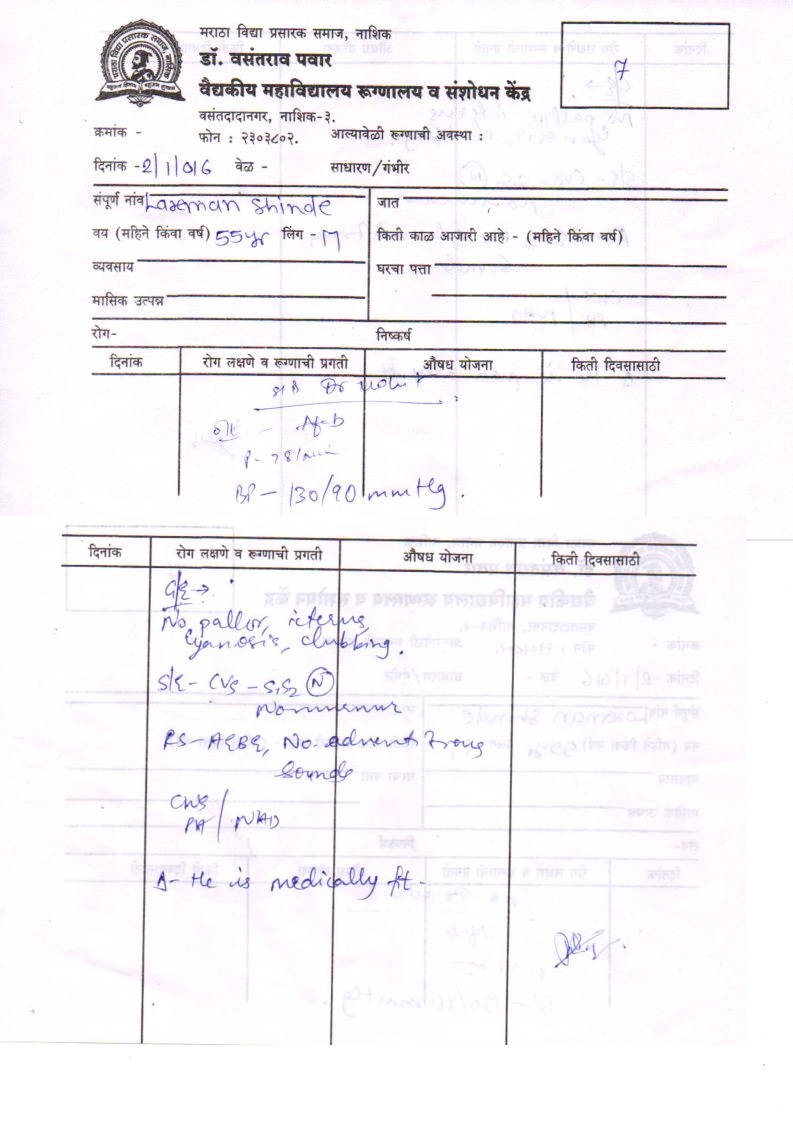 मराठा विद्या प्रसारक समाज, नाशिक
डॉ. वसंतराव पवार
वैद्यकीय महाविद्यालय रूग्णालय व संशोधन केंद्र
वसंतदादानगर, नाशिक-३.
7
क्रमांक - फोन : २३०३८०२. आल्यावेळी रूग्णाची अवस्था :
दिनांक - 2/1/06 वेळ - साधारण/गंभीर
संपूर्ण नांव Laxman Shinde जात
वय (महिने किंवा वर्ष) 55yr लिंग - M किती काळ आजारी आहे - (महिने किंवा वर्ष)
व्यवसाय घरचा पत्ता
मासिक उत्पन्न
रोग- निष्कर्ष
दिनांक रोग लक्षणे व रूग्णाची प्रगती औषध योजना किती दिवसासाठी
S/B Dr
O/E - Af-b
P - 78/min
BP - 130/90 mmHg.
दिनांक रोग लक्षणे व रूग्णाची प्रगती औषध योजना किती दिवसासाठी
G/E →
No pallor, icterus,
Cyanosis, clubbing.
S/E - CVS - S1S2 (N)
No murmur
RS - AEBE, No adventitious
Sounds
CNS
PA / NAD
A- He is medically fit -